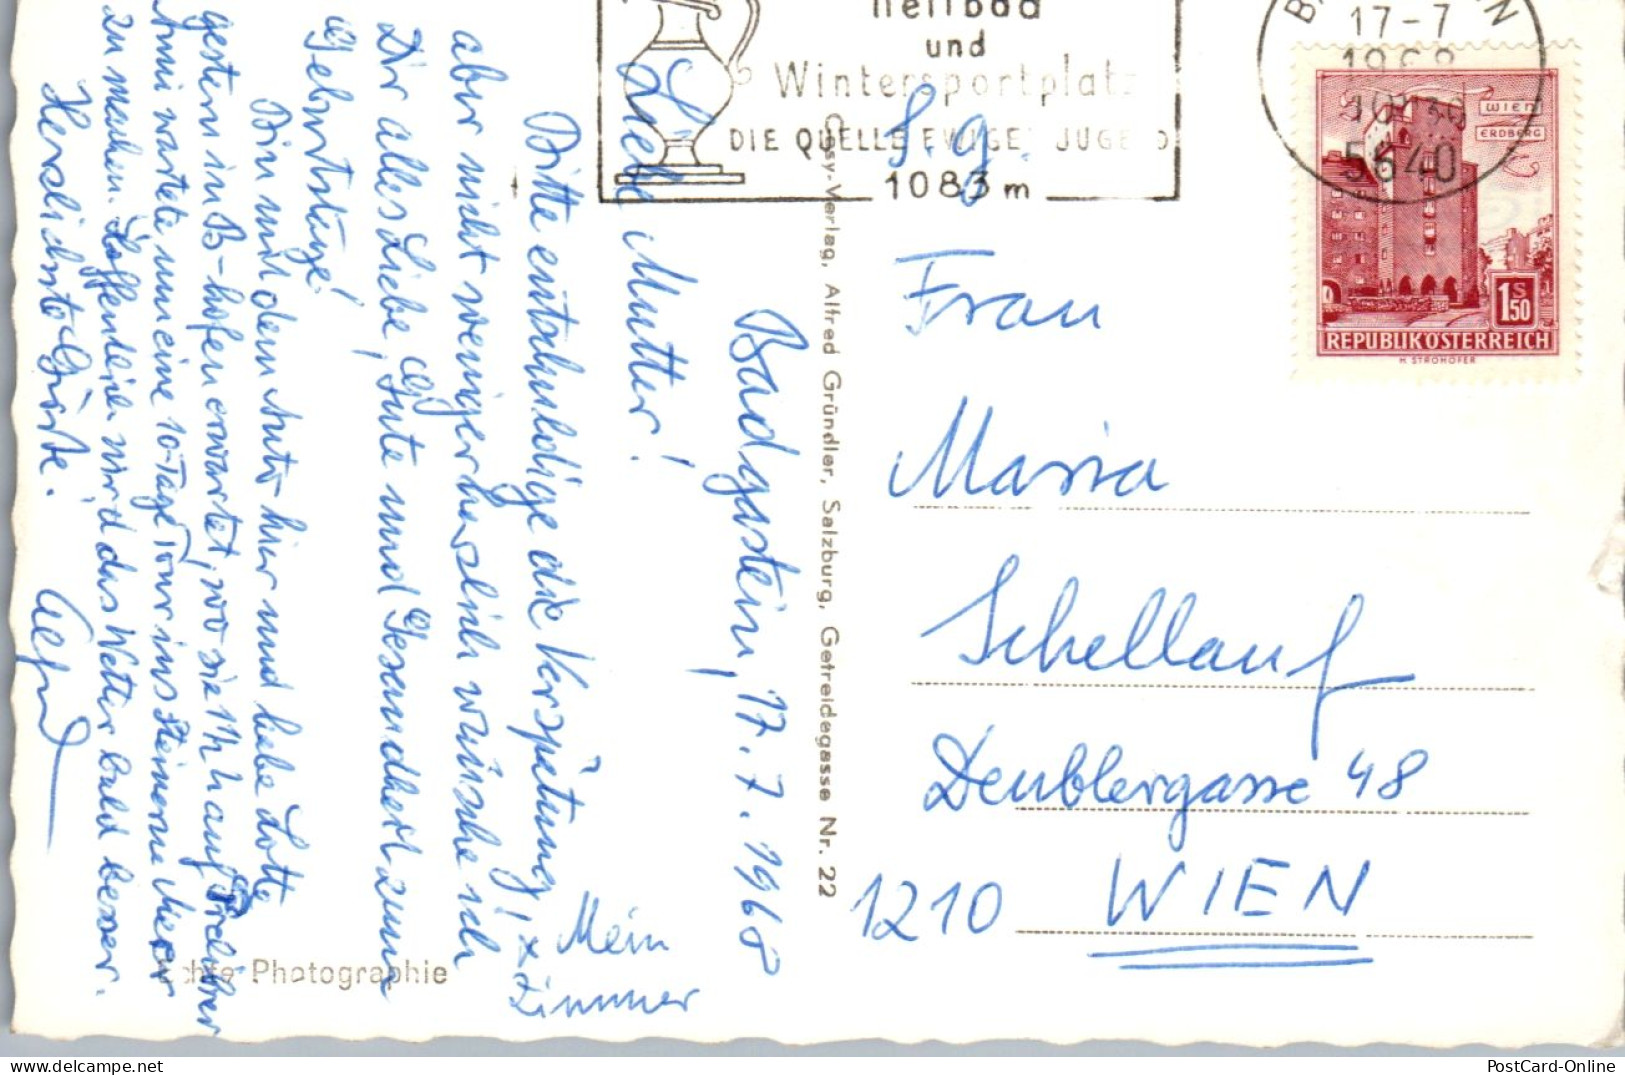 Heilbad
und
Wintersportplatz
DIE QUELLE EWIGER JUGEND
1083 m
17-7
1968
5640
WIEN
ERDBERG
1S50
REPUBLIK ÖSTERREICH
H. STROHOFER
Badgastein, 17.7.1968
Liebe Mutter!
Bitte entschuldige die Verspätung!
aber nicht weniger herzlich wünsche ich
Dir alles Liebe, Gute und Gesundheit zum
Geburtstage!
Bin mit dem Auto hier und habe Lotte
gestern in B-hofen erwartet, wo sie 1/2 h auf
Anni wartete um eine 10-Tage Tour ins Steinerne Meer
zu machen. Hoffentlich wird das Wetter bald besser.
Herzlichste Grüße.
x Mein
Zimmer
Cosy-Verlag, Alfred Gründler, Salzburg, Getreidegasse Nr. 22
Echte Photographie
S. g.
Frau
Maria
Schellauf
Deublergasse 48
1210 WIEN